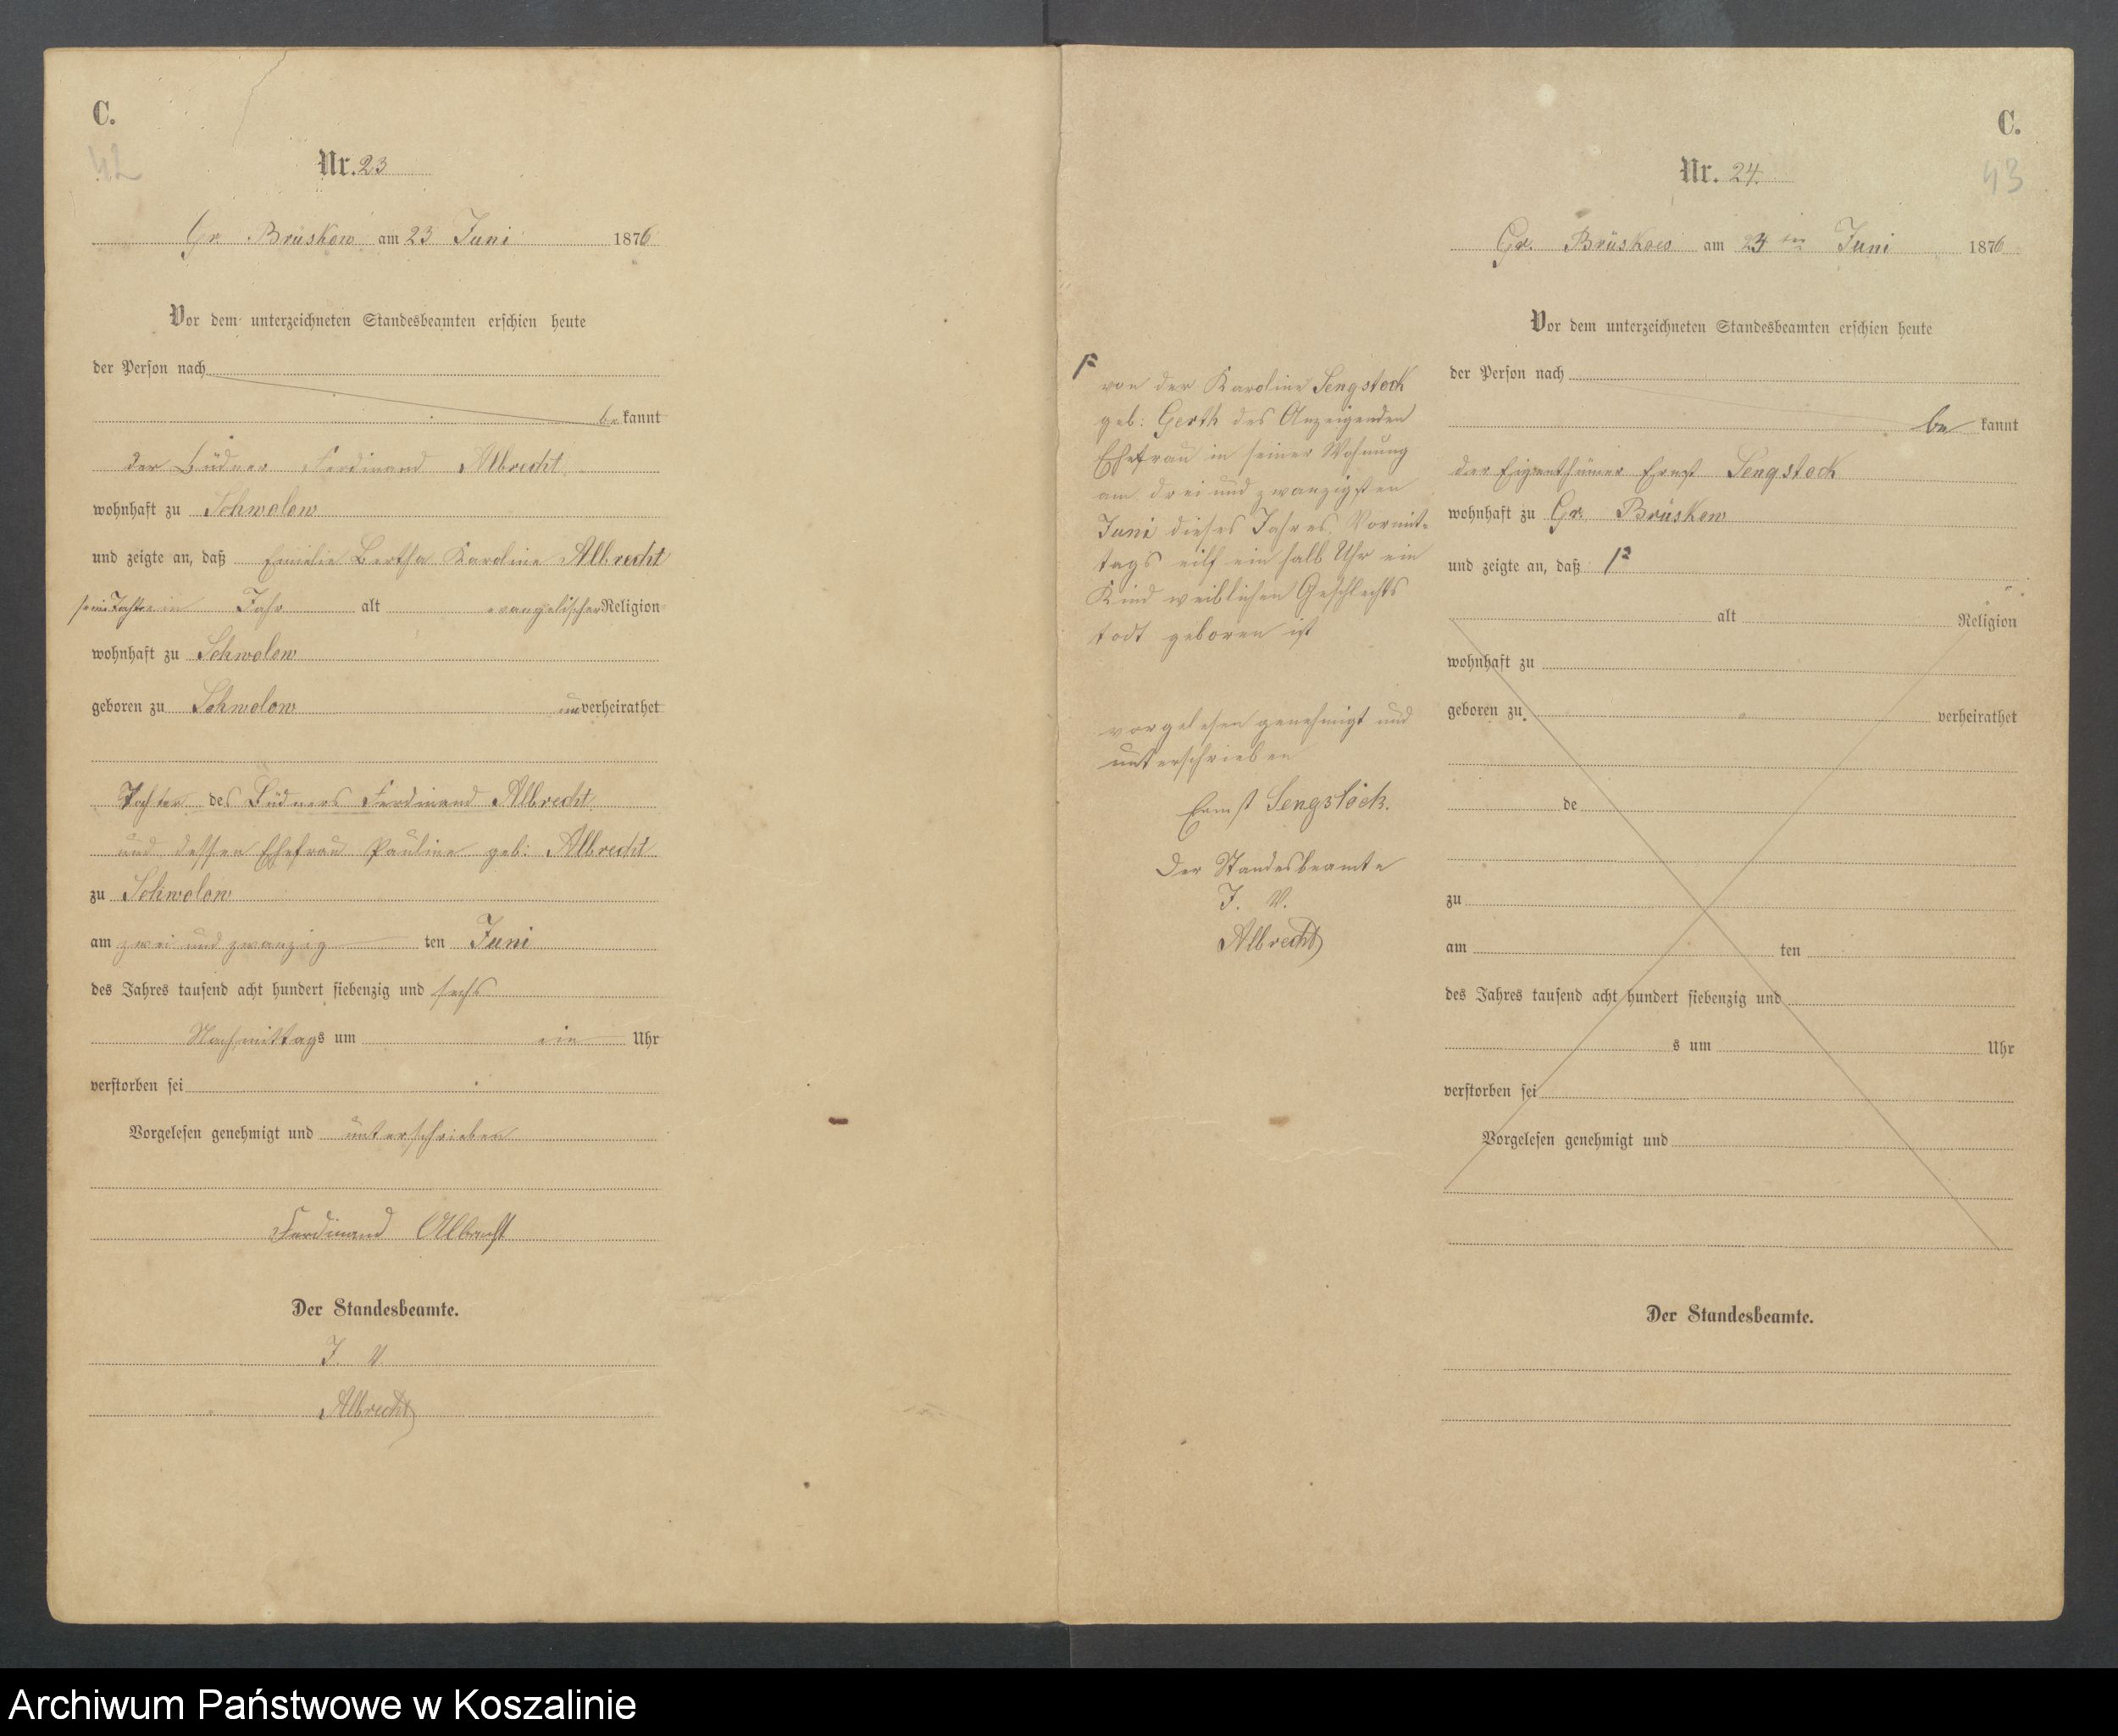 C.
42
Nr. 23
Gr. Brüskow am 23 Juni 1876
Vor dem unterzeichneten Standesbeamten erschien heute
der Person nach
bekannt
der Büdner Ferdinand Albrecht
wohnhaft zu Schwolow
und zeigte an, daß Emilie Bertha Karoline Albrecht
seine Tochter ein Jahr alt evangelischer Religion
wohnhaft zu Schwolow
geboren zu Schwolow unverheirathet
Tochter des Büdners Ferdinand Albrecht
und dessen Ehefrau Pauline geb: Albrecht
zu Schwolow
am zwei und zwanzig ten Juni
des Jahres tausend acht hundert siebenzig und sechs
Nachmittags um ein Uhr
verstorben sei
Vorgelesen genehmigt und unterschrieben
Ferdinand Albrecht
Der Standesbeamte.
J. V.
Albrecht
von der Karoline Sengstock
geb: Gerth des Anzeigenden
Ehefrau in seiner Wohnung
am drei und zwanzigsten
Juni dieses Jahres Vormit-
tags eilf ein halb Uhr ein
Kind weiblichen Geschlechts
todt geboren ist
vorgelesen genehmigt und
unterschrieben
Ernst Sengstock.
Der Standesbeamte
J. V.
Albrecht
C.
43
Nr. 24.
Gr. Brüskow am 24 ten Juni 1876
Vor dem unterzeichneten Standesbeamten erschien heute
der Person nach
be kannt
der Eigenthümer Ernst Sengstock
wohnhaft zu Gr. Brüskow
und zeigte an, daß
alt Religion
wohnhaft zu
geboren zu verheirathet
de
zu
am ten
des Jahres tausend acht hundert siebenzig und
s um Uhr
verstorben sei
Vorgelesen genehmigt und
Der Standesbeamte.
Archiwum Państwowe w Koszalinie